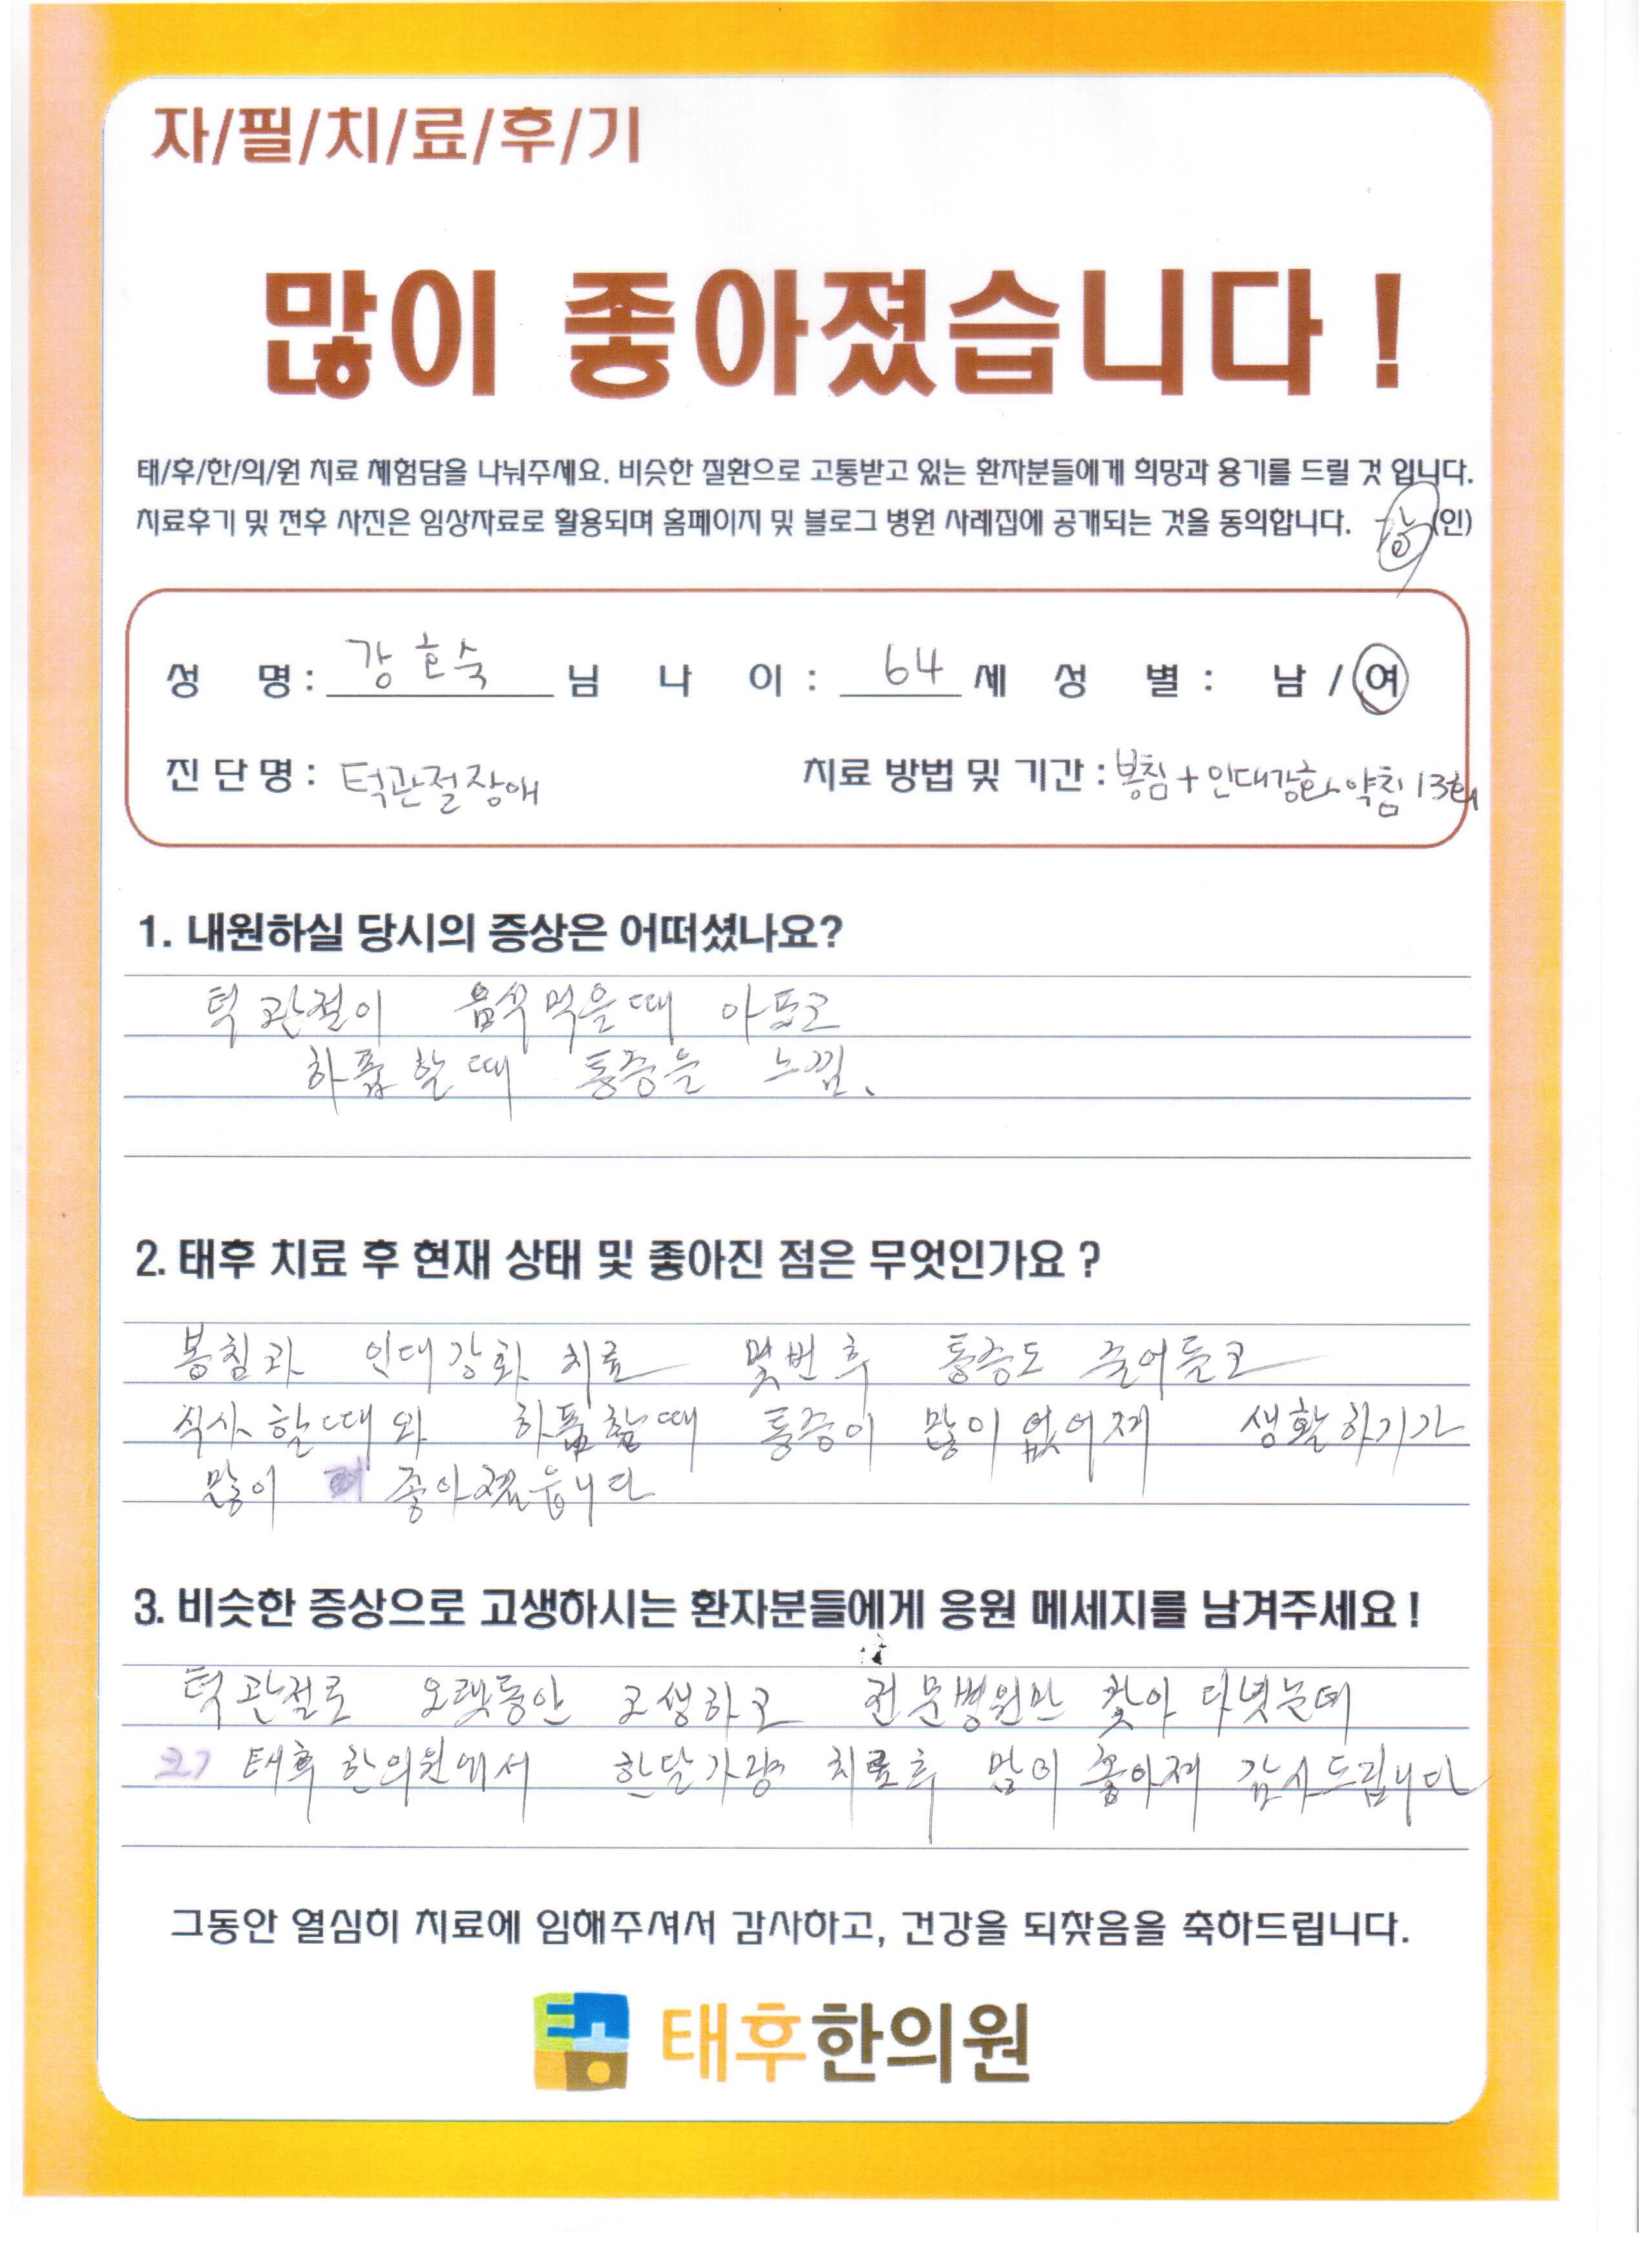 자/필/치/료/후/기
많이 좋아졌습니다 !
태/후/한/의/원 치료 체험담을 나눠주세요. 비슷한 질환으로 고통받고 있는 환자분들에게 희망과 용기를 드릴 것 입니다.
치료후기 및 전후 사진은 임상자료로 활용되며 홈페이지 및 블로그 병원 사례집에 공개되는 것을 동의합니다. 강 (인)
성 명 : 강호숙 님 나 이 : 64 세 성 별 : 남 / 여
진 단 명 : 턱관절장애 치료 방법 및 기간 : 봉침 + 인대강화약침 13회
1. 내원하실 당시의 증상은 어떠셨나요?
턱관절이 음식먹을때 아프고
하품할때 통증을 느낌.
2. 태후 치료 후 현재 상태 및 좋아진 점은 무엇인가요 ?
봉침과 인대강화 치료 몇번후 통증도 줄어들고
식사할때와 하품할때 통증이 많이 없어져 생활하기가
많이 좋아졌읍니다
3. 비슷한 증상으로 고생하시는 환자분들에게 응원 메세지를 남겨주세요 !
턱관절로 오랫동안 고생하고 전문병원만 찾아 다녓는데
태후한의원에서 한달가량 치료후 많이 좋아져 감사드립니다
그동안 열심히 치료에 임해주셔서 감사하고, 건강을 되찾음을 축하드립니다.
태후한의원